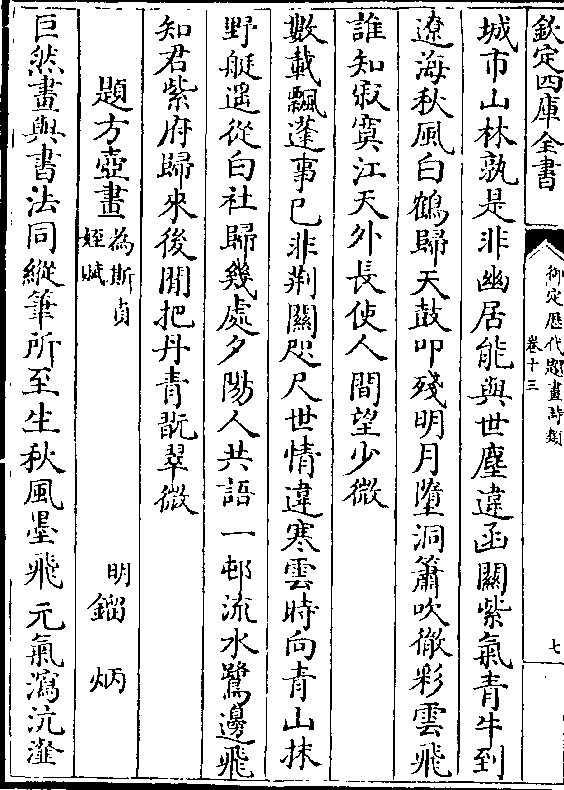 欽定四庫全書
御定歴代題畫詩類
卷十三
七
城市山林孰是非幽居能與世塵違函關紫氣青牛到
遼海秋風白鶴歸天鼓叩殘明月墮洞簫吹徹彩雲飛
誰知寂寞江天外長使人間望少微
數載飄蓬事已非荆關咫尺世情違寒雲時向青山抹
野艇遥從白社歸幾處夕陽人共語一邨流水鷺邊飛
知君紫府歸來後閒把丹青翫翠微
題方壺畫為斯貞
姪賦
明鎦炳
巨然畫與書法同縱筆所至生秋風墨飛元氣瀉沆瀣